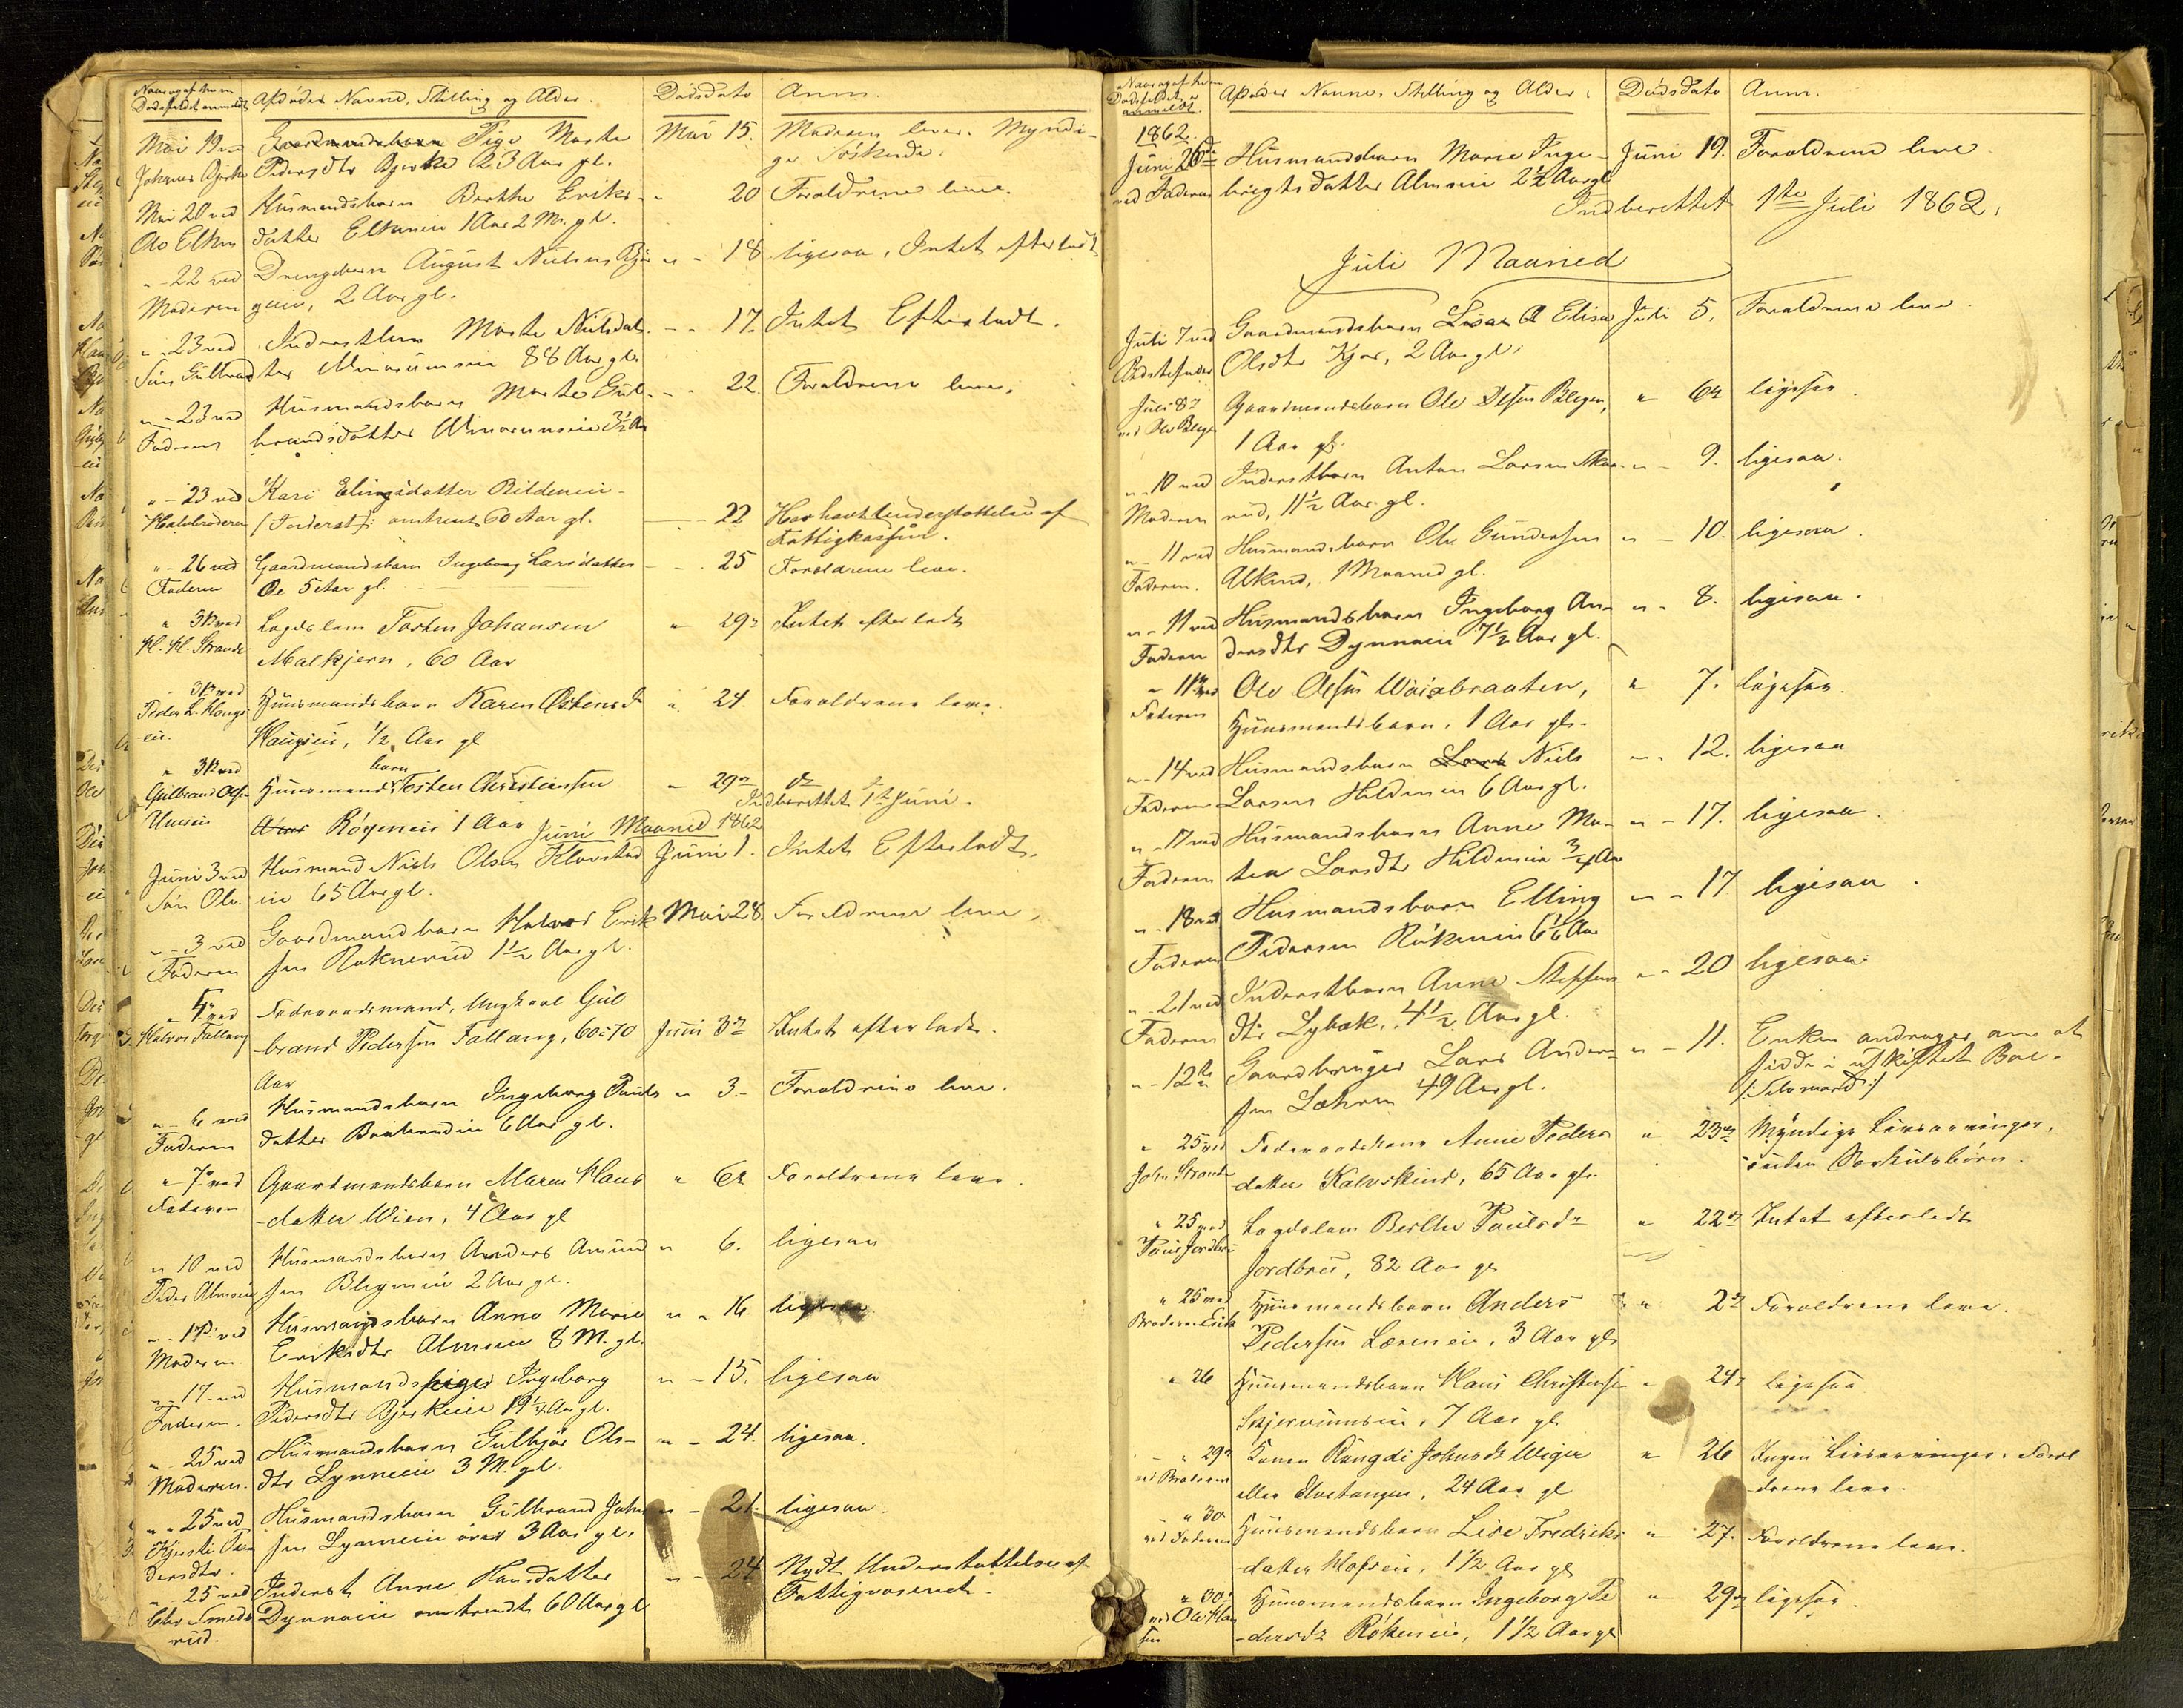 Naar og af hvem
Dødsfaldet anmeldt
Afdødes Navne, Stilling og Alder.
Dødsdato
Anm.
Mai 19 ved
Johannes Bjerke
Gaardmandsbarn Pige Marte
Pedersdtr Bjerke 23 Aar gl.
Mai 15.
Moderen lever. Myndi-
ge Søskende.
Mai 20 ved
Ole Elken
Husmandsbarn Berthe Eriks-
datter Elkeneie 1 Aar 2 Mr. gl.
" 20
Forældrene leve.
" - 22 ved
Moderen
Drengebarn August Nielsen
2 Aar gl.
" - 18
ligesaa, Intet efterladt
" - 23 ved
Søn Gulbrand
Inderstken Marte Nielsdat-
ter 88 Aar gl.
" - 17.
Intet Efterladt.
" - 23 ved
Faderen
Husmandsbarn Marte Gul-
brandsdatter 3½ Aar
" - 22.
Forældrene leve.
" - 23 ved
Halvbroderen
Kari Elingsdatter Rildeneie
(Inderst): omtrent 60 Aar gl.
- 22
Har havt Understøttelse af
Fattigkassen.
" - 26 ved
Faderen
Gaardmandsbarn Ingeborg Larsdatter
Øe 5 Aar gl.
- 25
Forældrene leve.
" 31 ved
Hl. Hl. Strande
Lægdslem Torsten Johansen
Malkjern, 60 Aar
" 29
Intet efterladt
" 31 ved
Peder L. Haugs-
eie.
Huusmandsbarn Karen Østensd
Haugseie, ½ Aar gl
" 24.
Forældrene leve.
" 31 ved
Gulbrand Olsen
barn
Huusmands Tosten Christiansen
Røgeneie 1 Aar
- 29
do
Indberettet 1te Juni.
Juni Maaned 1862
Juni 3 ved
Søn Ole.
Husmand Niels Olsen Klovstad
eie 65 Aar gl.
Juni 1.
Intet Efterladt.
" - 3 ved
Faderen
Gaardmandbarn Halvor Erik
sen Roknerud 1½ Aar gl.
Mai 28.
Forældrene leve.
" 4 ved
Halvor Fallang
Føderaadsmand, Ungkarl Gul
brand Pedersen Fallang, 60 à 70
Aar
Juni 3
Intet efterladt.
" - 6 ved
Faderen
Husmandsbarn Ingeborg Pauls
datter 6 Aar gl.
" 3.
Forældrene leve.
" 7 ved
Faderen
Gaardmandsbarn Maren Hans
-datter Wien, 4 Aar gl
" 6
Forældrene leve.
" 10 ved
Peder Almseie
Husmandsbarn Anders Amund
sen Blegeneie 2 Aar gl.
" 6.
ligesaa
" - 17 ved
Moderen
Husmandsbarn Anne Marie
Eriksdtr Almseie 8 M. gl.
" - 16
ligesaa
" - 17 ved
Faderen.
Husmandspige Ingeborg
Pedersdtr Bjerkeeie 19½ Aar gl.
" - 15.
ligesaa
" - 25 ved
Moderen.
Husmandsbarn Gulbjør Ols-
dtr Lynneeie 3 M. gl.
" - 24.
ligesaa.
" - 25 ved
Kjersti Pe-
dersdtr.
Husmandsbarn Gulbrand John
sen Lynneeie øvre 3 Aar gl.
" - 21.
ligesaa
" - 25 ved
Chr Smeds-
rud.
Inderst Anne Hansdatter
Dynnaeie omtrendt 60 Aar gl
" - 24
Nydt Understøttelse af
Fattigvæsenet.
Naar og af hvem
Dødsfaldet er
anmeldt.
Afdødes Navne, Stilling og Alder.
Dødsdato
Anm.
1862.
Juni 26de
ved Faderen
Husmandsbarn Marie Inge-
brigtsdatter Almseie 2½ Aar gl
Juni 19.
Forældrene leve
Indberettet 1ste Juli 1862.
Juli Maaned
Juli 7 ved
Bedstefader
Gaardmandsbarn Elise
Olsdtr Kjos, 2 Aar gl.
Juli 5.
Forældrene leve
Juli 8
ved Ole Blegen
Gaardmandsbarn Ole Olsen Blegen,
1 Aar gl.
" 6
ligesaa
" - 10 ved
Moderen
Inderstbarn Anton Larsen Skar-
rud, 11½ Aar gl.
" - 9.
ligesaa.
" 11 ved
Faderen.
Husmandsbarn Ole Gundersen
Alkind, 1 Maaned gl.
" - 10.
ligesaa.
" - 11 ved
Faderen
Husmandsbarn Ingeborg An-
dersdtr Dynnaeie 7½ Aar gl.
" - 8.
ligesaa.
" 11 ved
Faderen
Ole Olsen Woixbraaten,
Huusmandsbarn, 1 Aar gl.
" 7.
ligesaa.
" - 14 ved
Faderen
Husmandsbarn Lars Niels
Larsen Hildeneie 6 Aar gl.
" - 12.
ligesaa
" - 17 ved
Faderen
Husmandsbarn Anne Ma-
thea Larsdtr Hildeneie ¾ Aar
" - 17.
ligesaa.
" - 18 ved
Faderen
Husmandsbarn Elling
Pedersen Røkeneie 6½ Aar
" - 17
ligesaa.
" - 21 ved
Faderen
Inderstbarn Anne Steffens
dtr Lybæk, 4½ Aar gl.
" - 20
ligesaa.
" - 12te
Gaardbruger Lars Anders-
sen Læhren 49 Aar gl.
" - 11.
Enken andrager om at
sidde i uskiftet Boe.
/: Selvmord :/
" 25 ved
John Strande
Føderaadskone Anne Peders
datter Kalvskind, 65 Aar gl.
" 23
Myndige Livsarvinger,
uden Særkulsbørn.
" 25 ved
Paul Jordbru
Lægdslem Berthe Paulsdr
Jordbru, 82 Aar gl
" 22
Intet efterladt
" 25 ved
Broderen Erik
Huusmandsbarn Anders
Pedersen Læreneie, 3 Aar gl
" 2
Forældrene leve.
" 26
Huusmandsbarn Hans Christensen
Skjervumseie, 7 Aar gl
" 24
ligesaa
" 29
ved Broderen
Konen Rangdi Johnsdr Weger
eller Elvetangen, 24 Aar gl
" 26
Ingen Livsarvinger. Foræl
drene leve.
" 30
ved Faderen
Huusmandsbarn Lise Fredriks
datter Hofseie, 1½ Aar gl
" 27.
Forældrene leve.
" 30
ved Ole Han
sen
Huusmandsbarn Ingeborg Pe
-dersdr Røkeneie, 1½ Aar gl
" 29
ligesaa.